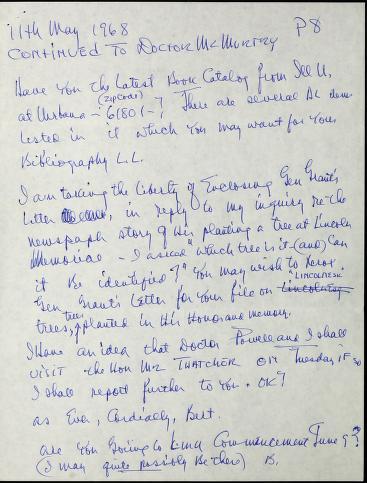 11th May 1968 P8
CONTINUED TO DOCTOR McMURTRY
Have you the Latest Book Catalog from Ill U,
at Urbana - (ZIPCODE) 61801 - ? There are several AL items
Listed in it which you may want for your
Bibliography L.L.
I am taking the Liberty of Enclosing Gen Grant's
Letter, in reply to my inquiry re the
newspaper story of His planting a tree at Lincoln
Memorial - I asked "which tree is it (and) Can
it Be identified?" You may wish to Xerox
Gen Grant's Letter for your file on "LINCOLNESK"
trees, planted in His Honor and memory.
I Have an idea that Doctor Powell and I shall
VISIT the Hon Mr THATCHER on Tuesday if so
I shall report further to you. OK?
as Ever, Cordially, Bert.
are you Going to LMU Commencement June 9?
(I may quite possibly Be there) B.